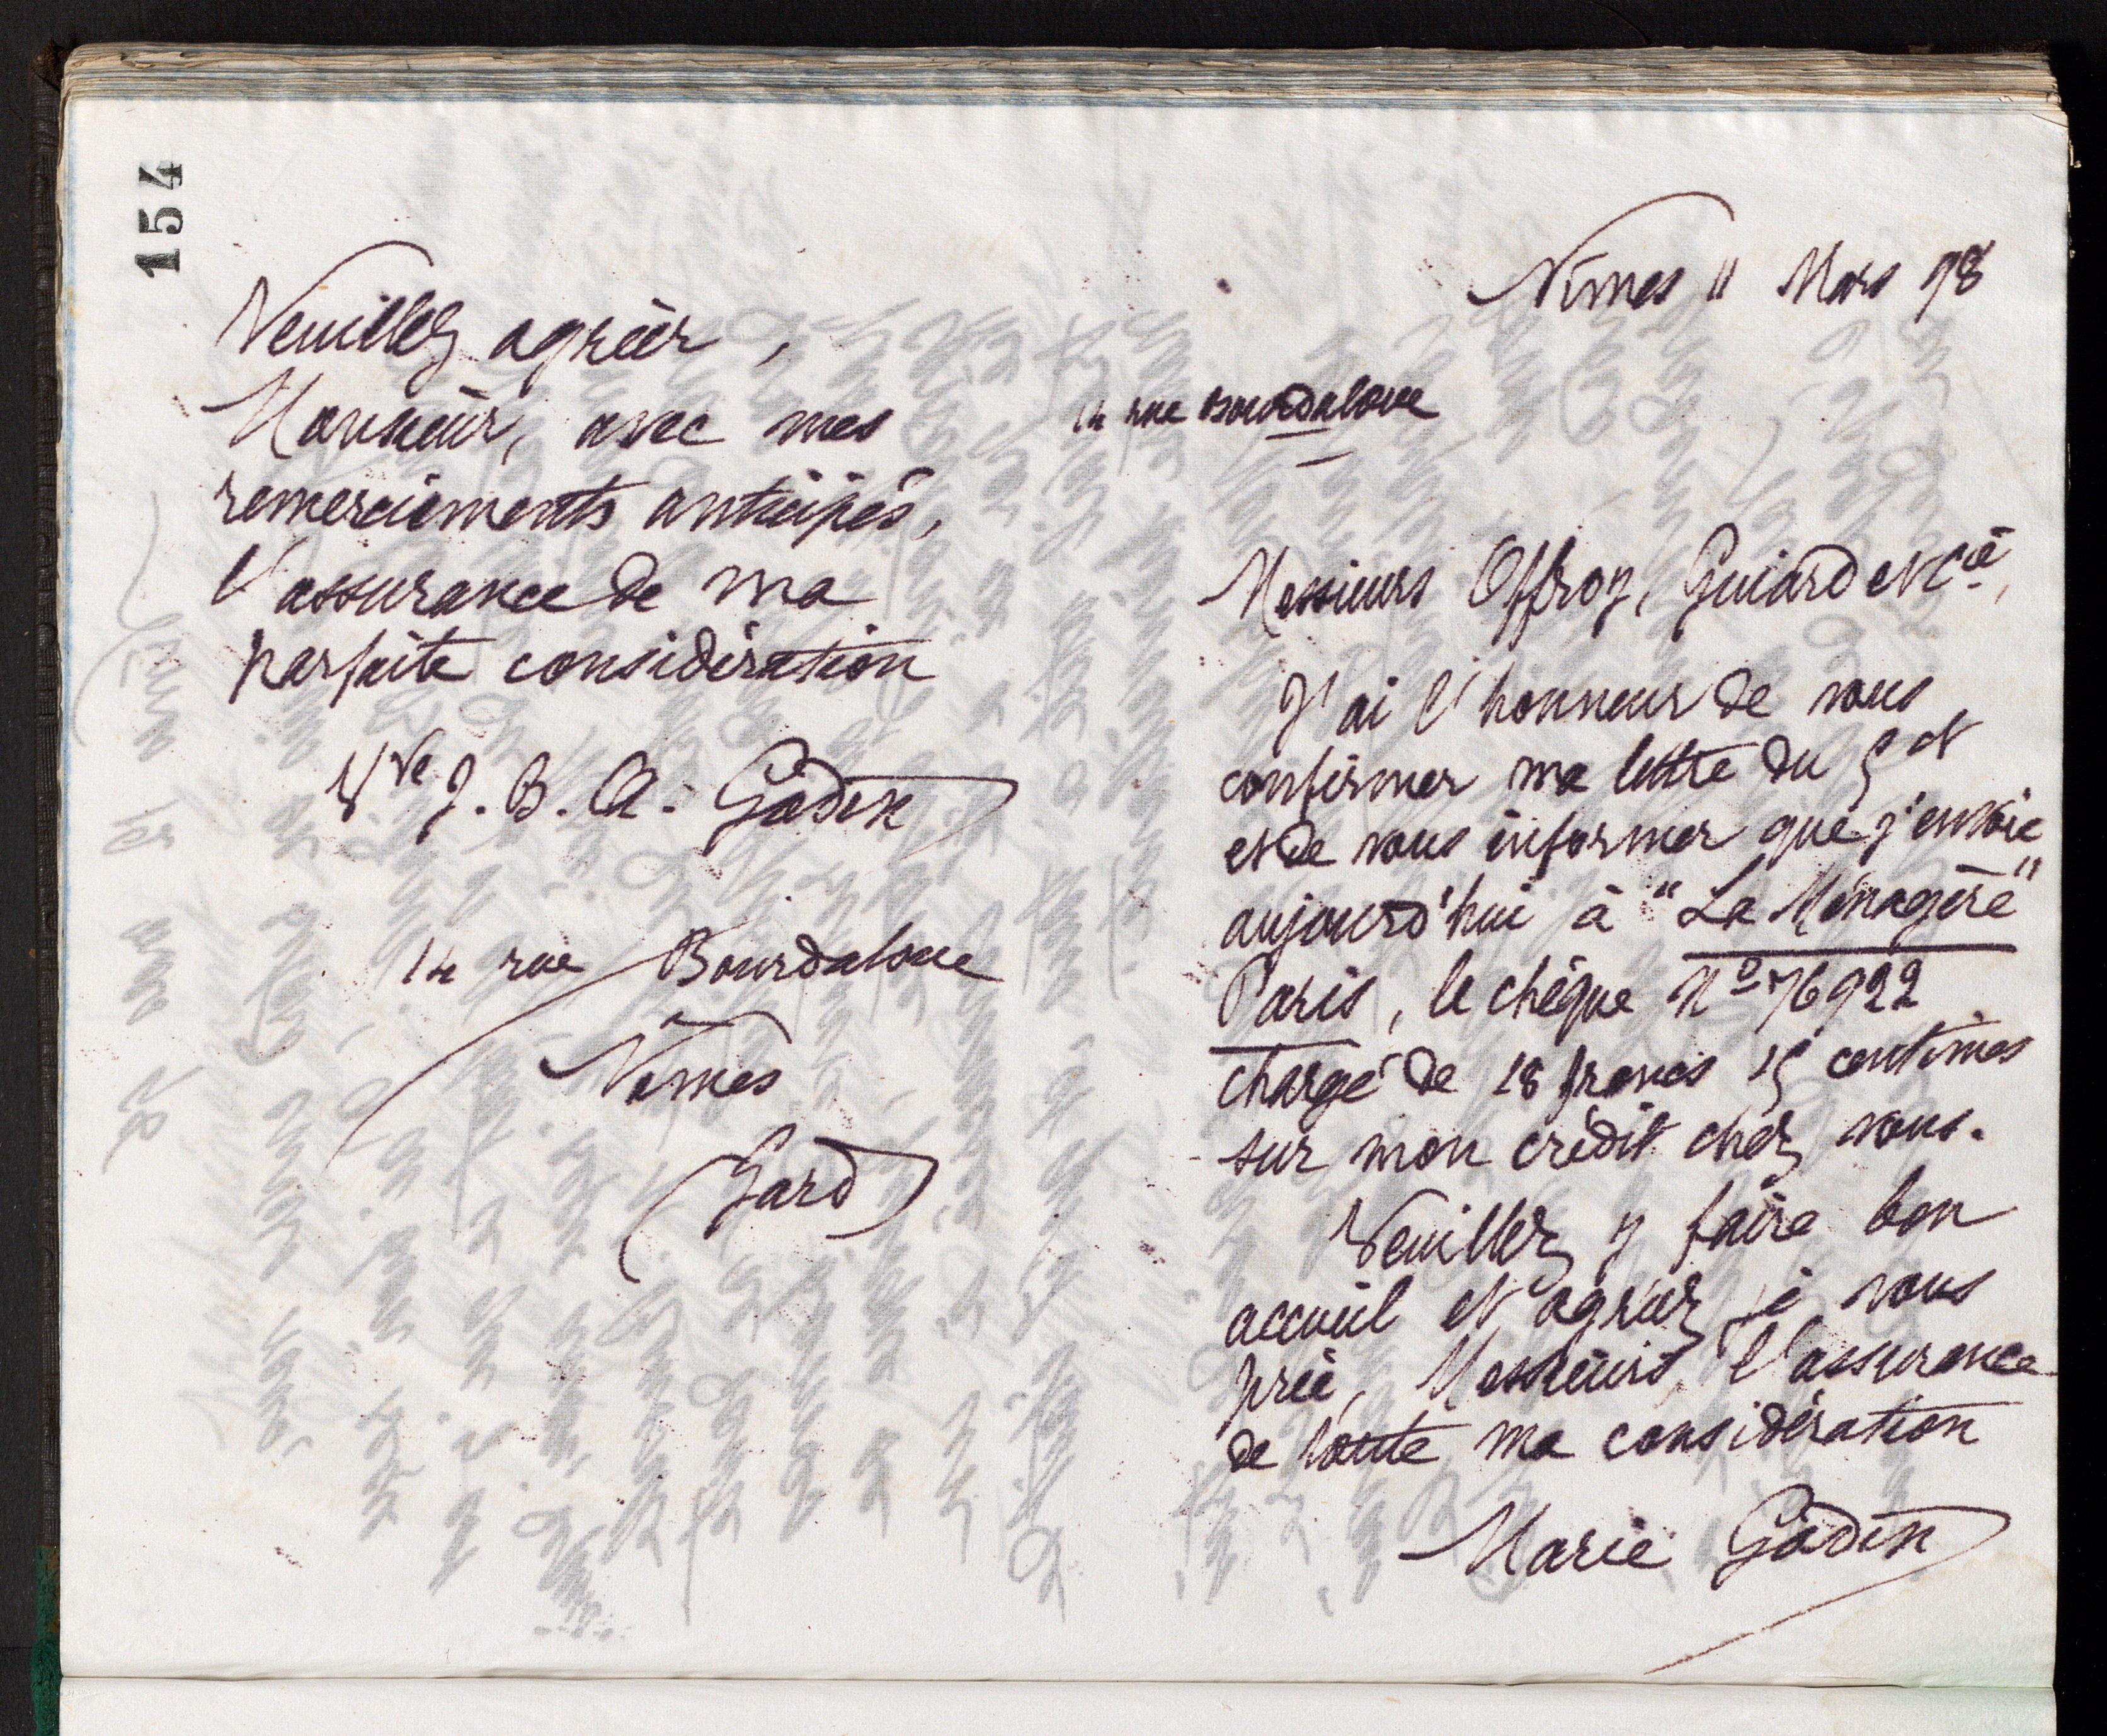 154
Veuillez agréer,
Monsieur, avec mes
remerciements anticipés,
l'assurance de ma
parfaite considération
Vve J. B. A. Godin
14 rue Bourdaloue
Nîmes
(Gard)
Nîmes 11 Mars 98
14 rue Bourdaloue
Messieurs Offroy, Guiard et Cie,
J'ai l'honneur de vous
confirmer ma lettre du 5 ct
et de vous informer que j'envoie
aujourd'hui à "La Ménagère"
Paris, le chèque No 76922
chargé de 18 francs 15 centimes
sur mon crédit chez vous.
Veuillez y faire bon
accueil et agréez, je vous
prie, Messieurs, l'assurance
de toute ma considération
Marie Godin